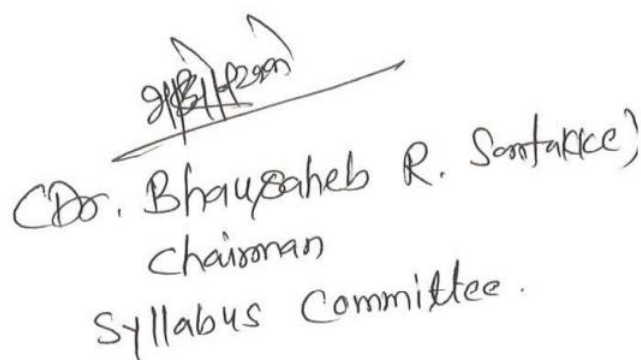 (Dr. Bhausaheb R. Sontakke)
Chairman
Syllabus Committee.